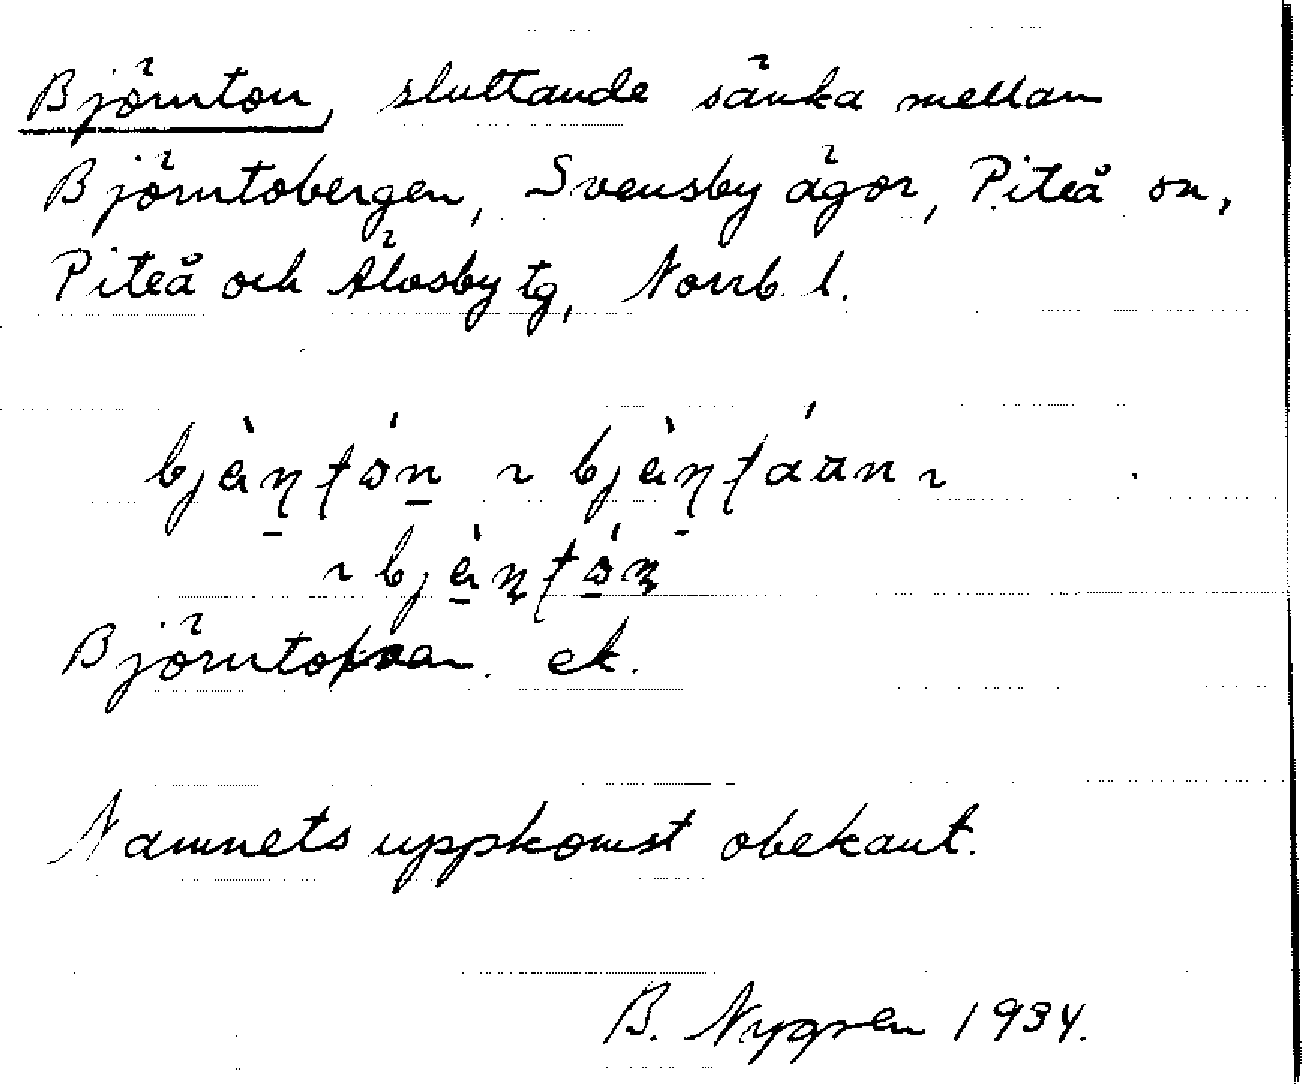 Björnton, sluttande sänka mellan
Björntobergen, Svensby ägor, Piteå sn,
Piteå och Älvsby tg, Norrb. l.
Björntovan. ek.
Namnets uppkomst obekant.
B. Nygren 1934.